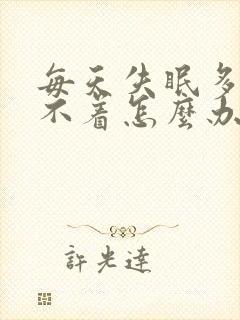 每天失眠多
不着怎麼办
許光達